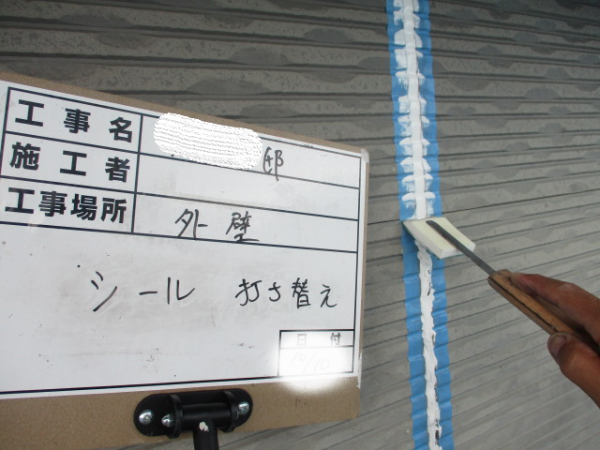 工事名 邸
施工者
工事場所 外壁
シール 打ち替え
日付